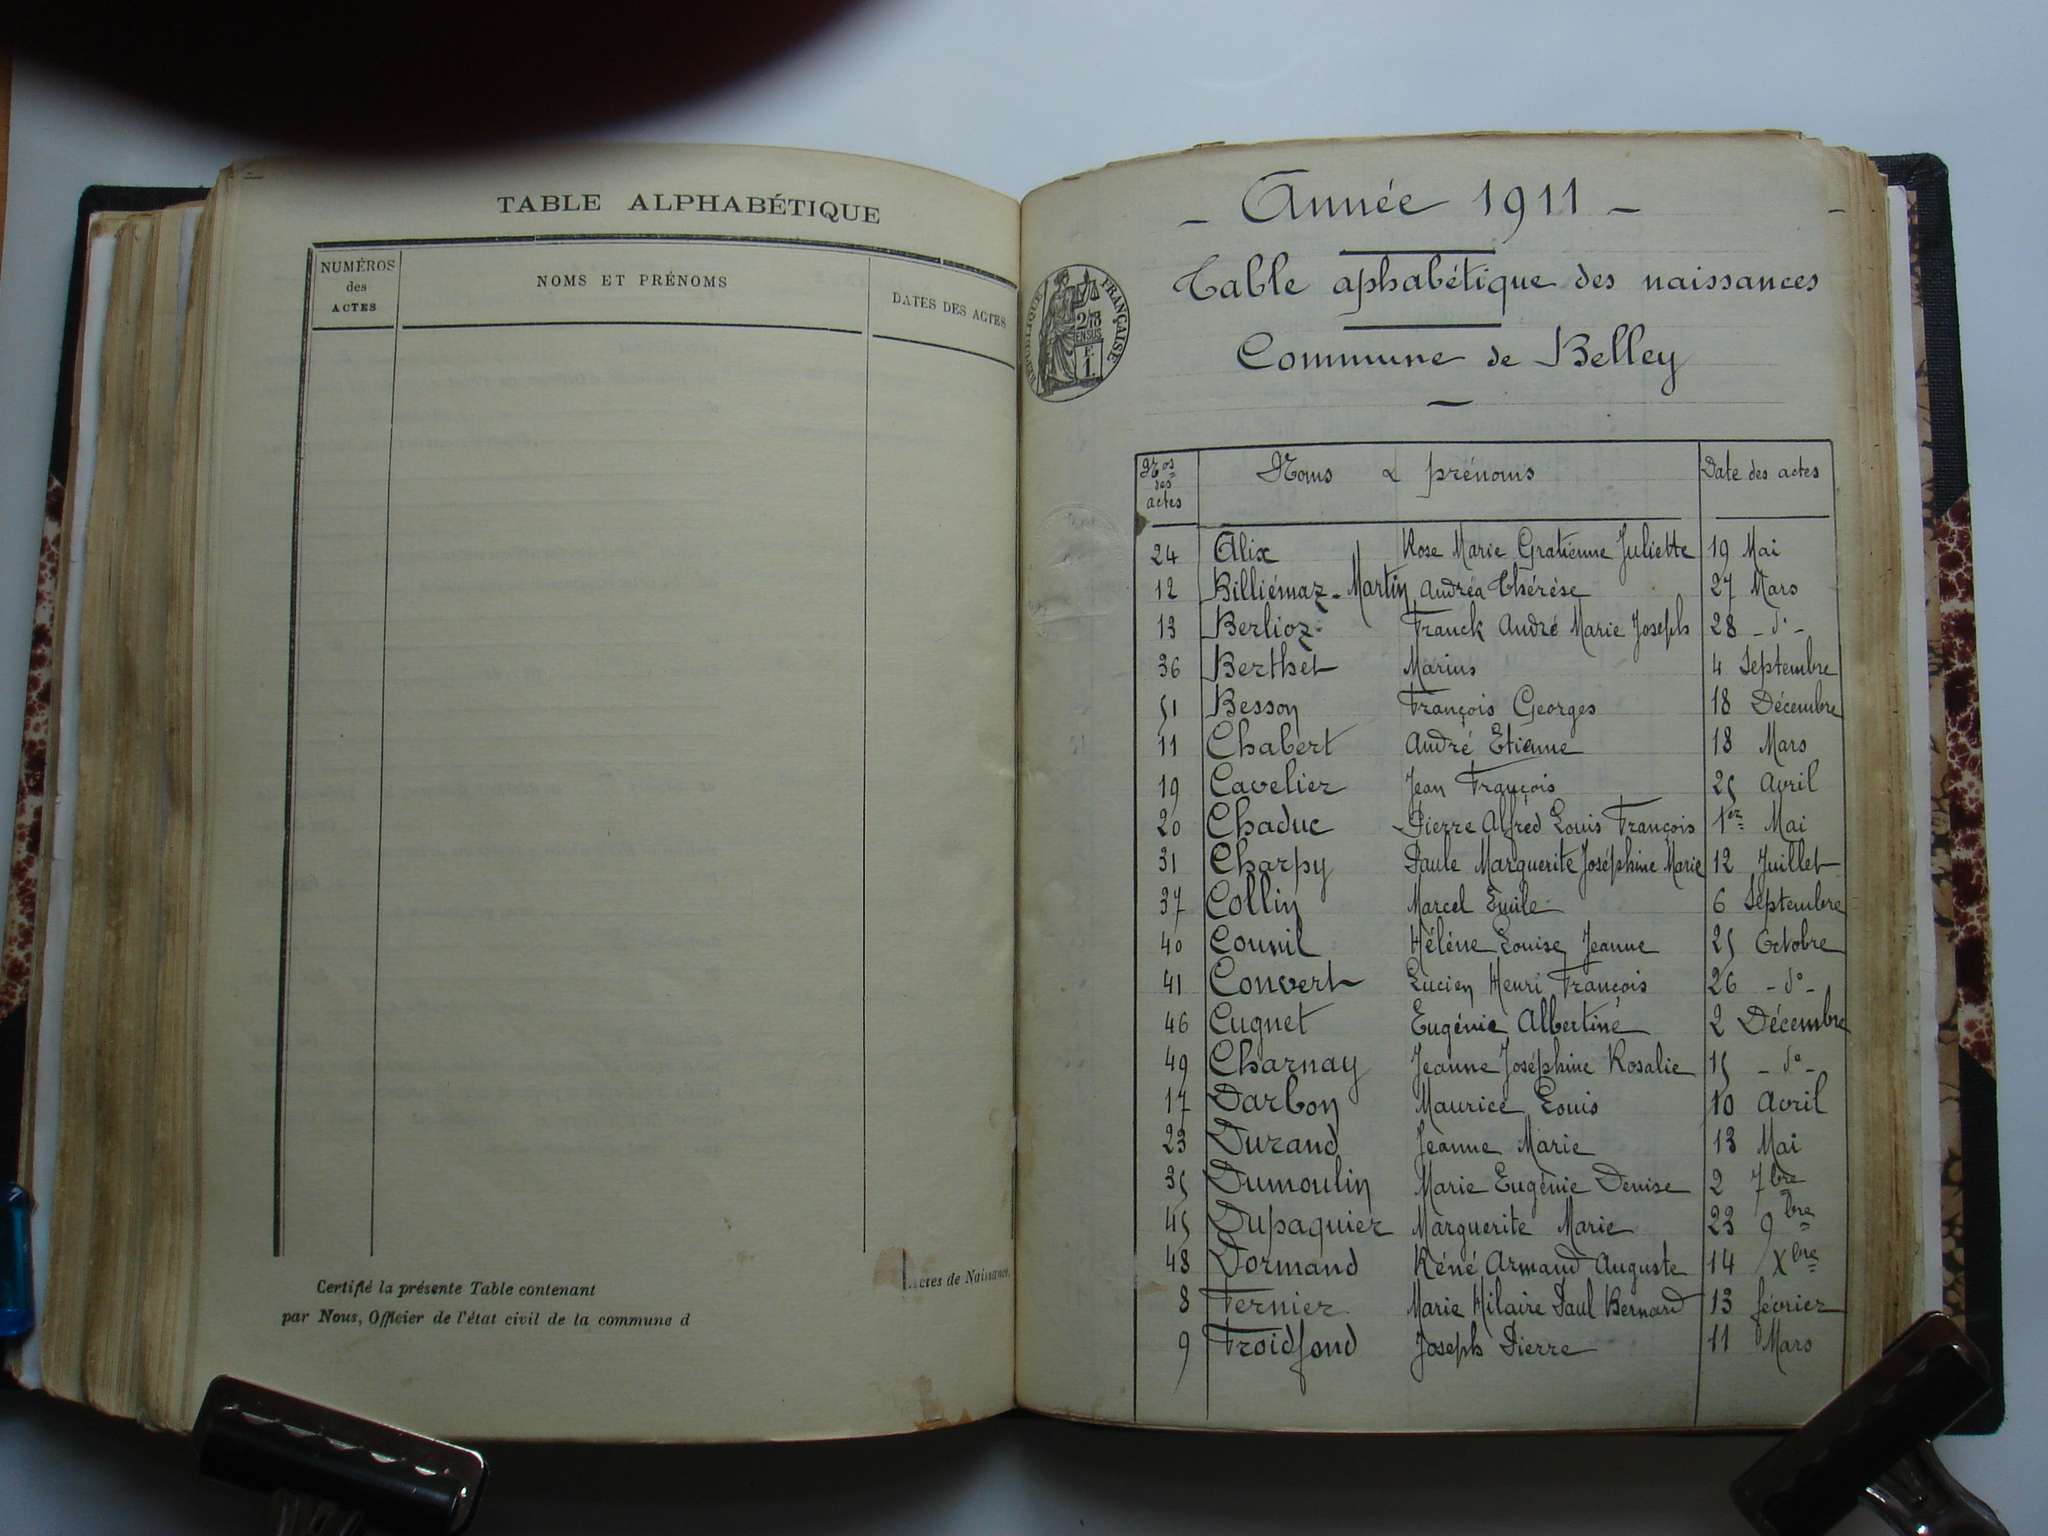 TABLE ALPHABÉTIQUE
NUMÉROS
des
ACTES
NOMS ET PRÉNOMS
DATES DES ACTES
Certifié la présente Table contenant
actes de Naissance
par Nous, Officier de l'état civil de la commune d
- Année 1911 -
Table aphabétique des naissances
Commune de Belley
RÉPUBLIQUE FRANÇAISE
2/10
EN SUS
F
1.
Nos
des
actes
Noms & prénoms
Date des actes
24 Alix Rose Marie Gratienne Juliette 19 Mai
12 Billiémaz-Martin Andréa Thérèse 27 Mars
13 Berlioz Franck André Marie Joseph 28 - do -
36 Berthet Marius 4 Septembre
51 Besson François Georges 18 Décembre
11 Chabert André Etienne 18 Mars
19 Cavelier Jean François 25 Avril
20 Chaduc Pierre Alfred Louis François 1er Mai
31 Charpy Paule Marguerite Joséphine Marie 12 Juillet
37 Collin Marcel Emile 6 Septembre
40 Hélène Louise Jeanne 25 Octobre
41 Convert Lucien Henri François 26 - do -
46 Cugnet Eugénie Albertine 2 Décembre
49 Charnay Jeanne Joséphine Rosalie 15 - do -
17 Darbon Maurice Louis 10 Avril
23 Durand Jeanne Marie 13 Mai
35 Dumoulin Marie Eugénie Denise 2 7bre
45 Dupaquier Marguerite Marie 23 9bre
48 Dormand Réné Armand Auguste 14 Xbre
8 Fernier Marie Hilaire Paul Bernard 13 février
9 Froidfond Joseph Pierre 11 Mars